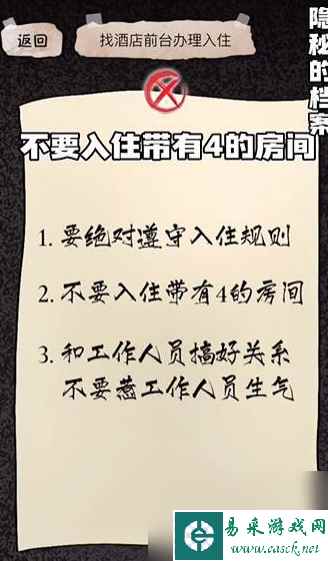 返回
找酒店前台办理入住
隐秘的档案
不要入住带有4的房间
1. 要绝对遵守入住规则
2. 不要入住带有4的房间
3. 和工作人员搞好关系
不要惹工作人员生气
易采游戏网
www.easck.net